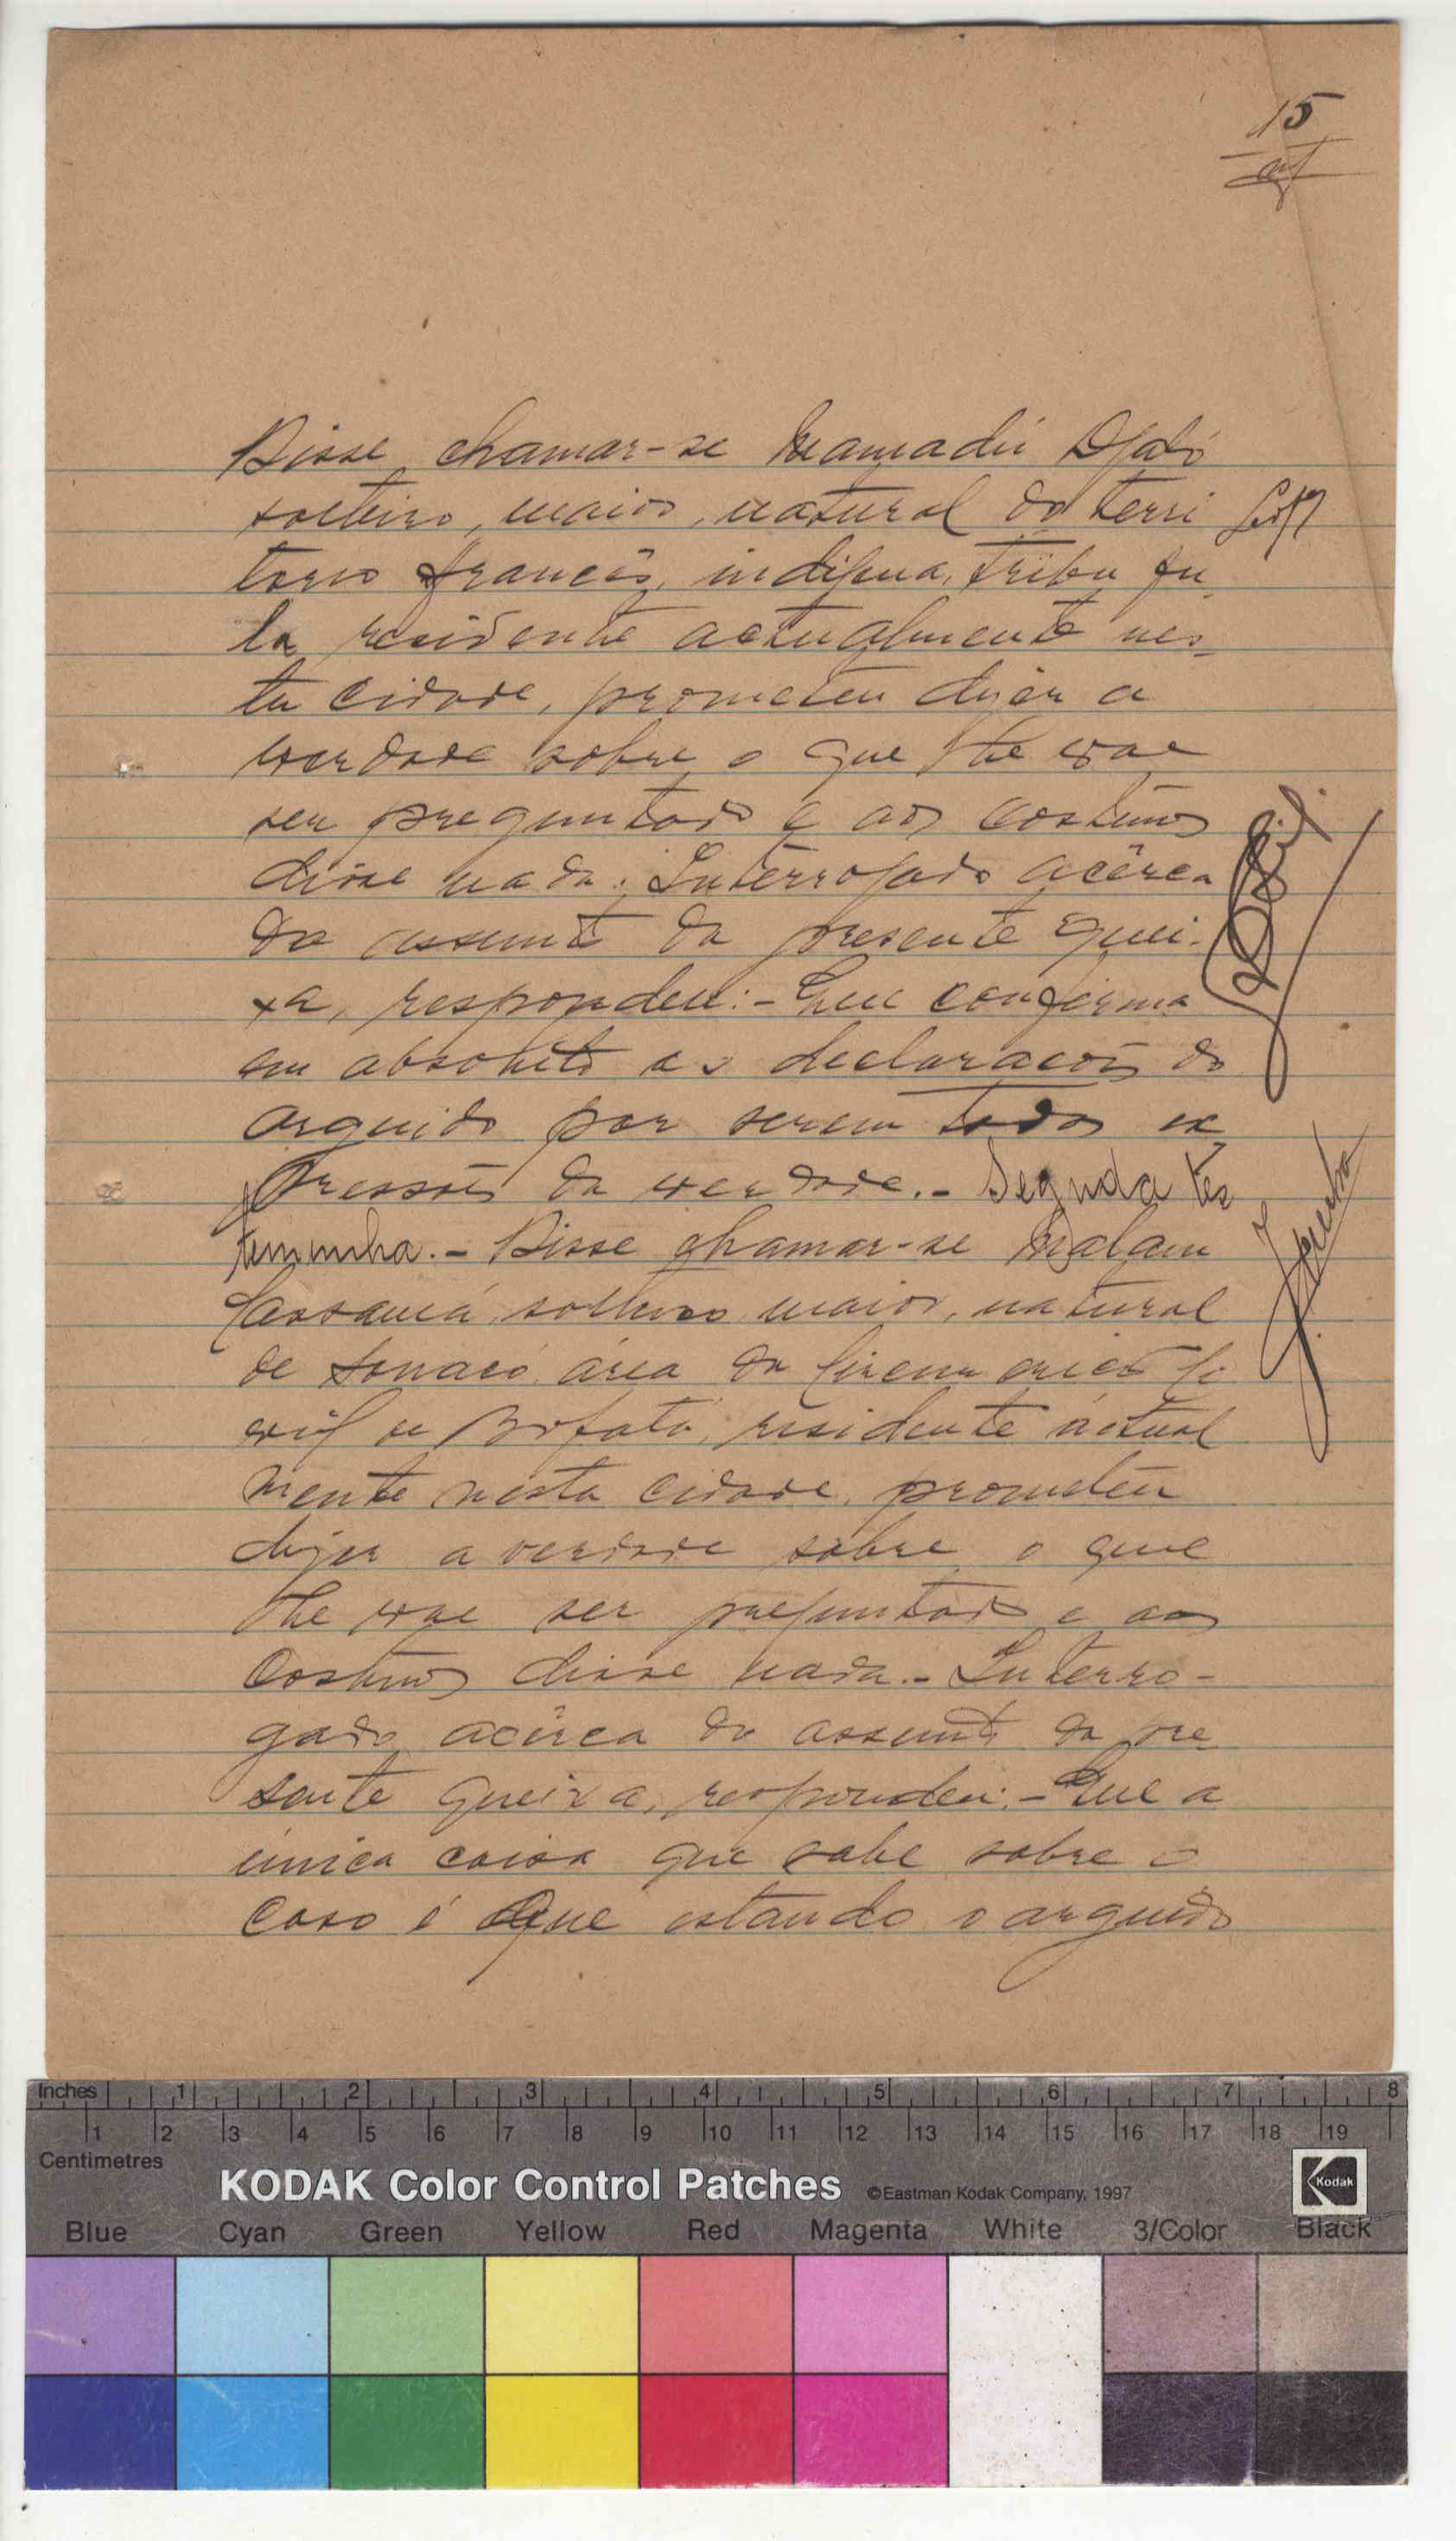 15
Disse chamar-se Mamadú Djaló
solteiro, maior, natural do terri
torio francês, indigena, tribu fu
la residente actualmente nes-
ta cidade, prometeu dizer a
verdade sobre o que lhe vae
ser preguntado e aos costumes
disse nada. Interrogado acêrca
do assunto da presente quei-
xa, respondeu:- Que confirma
em absoluto as declarações do
arguido por serem todas ex
pressões da verdade.- Segunda tes
temunha.- Disse chamar-se Malam
Cassamá, solteiro, maior, natural
de Sonacó, área da Circunscrição Ci
vil de Bafatá, residente actual
mente nesta cidade, prometeu
dizer a verdade sobre o que
lhe vae ser preguntado e aos
costumes disse nada.- Interro-
gado acêrca do assunto da pre
sente queixa, respondeu:- Que a
unica coisa que sabe sobre o
caso é que estando o arguido
Inches 1 2 3 4 5 6 7 8
1 2 3 4 5 6 7 8 9 10 11 12 13 14 15 16 17 18 19
Centimetres
KODAK Color Control Patches ©Eastman Kodak Company, 1997 Kodak
Blue Cyan Green Yellow Red Magenta White 3/Color Black